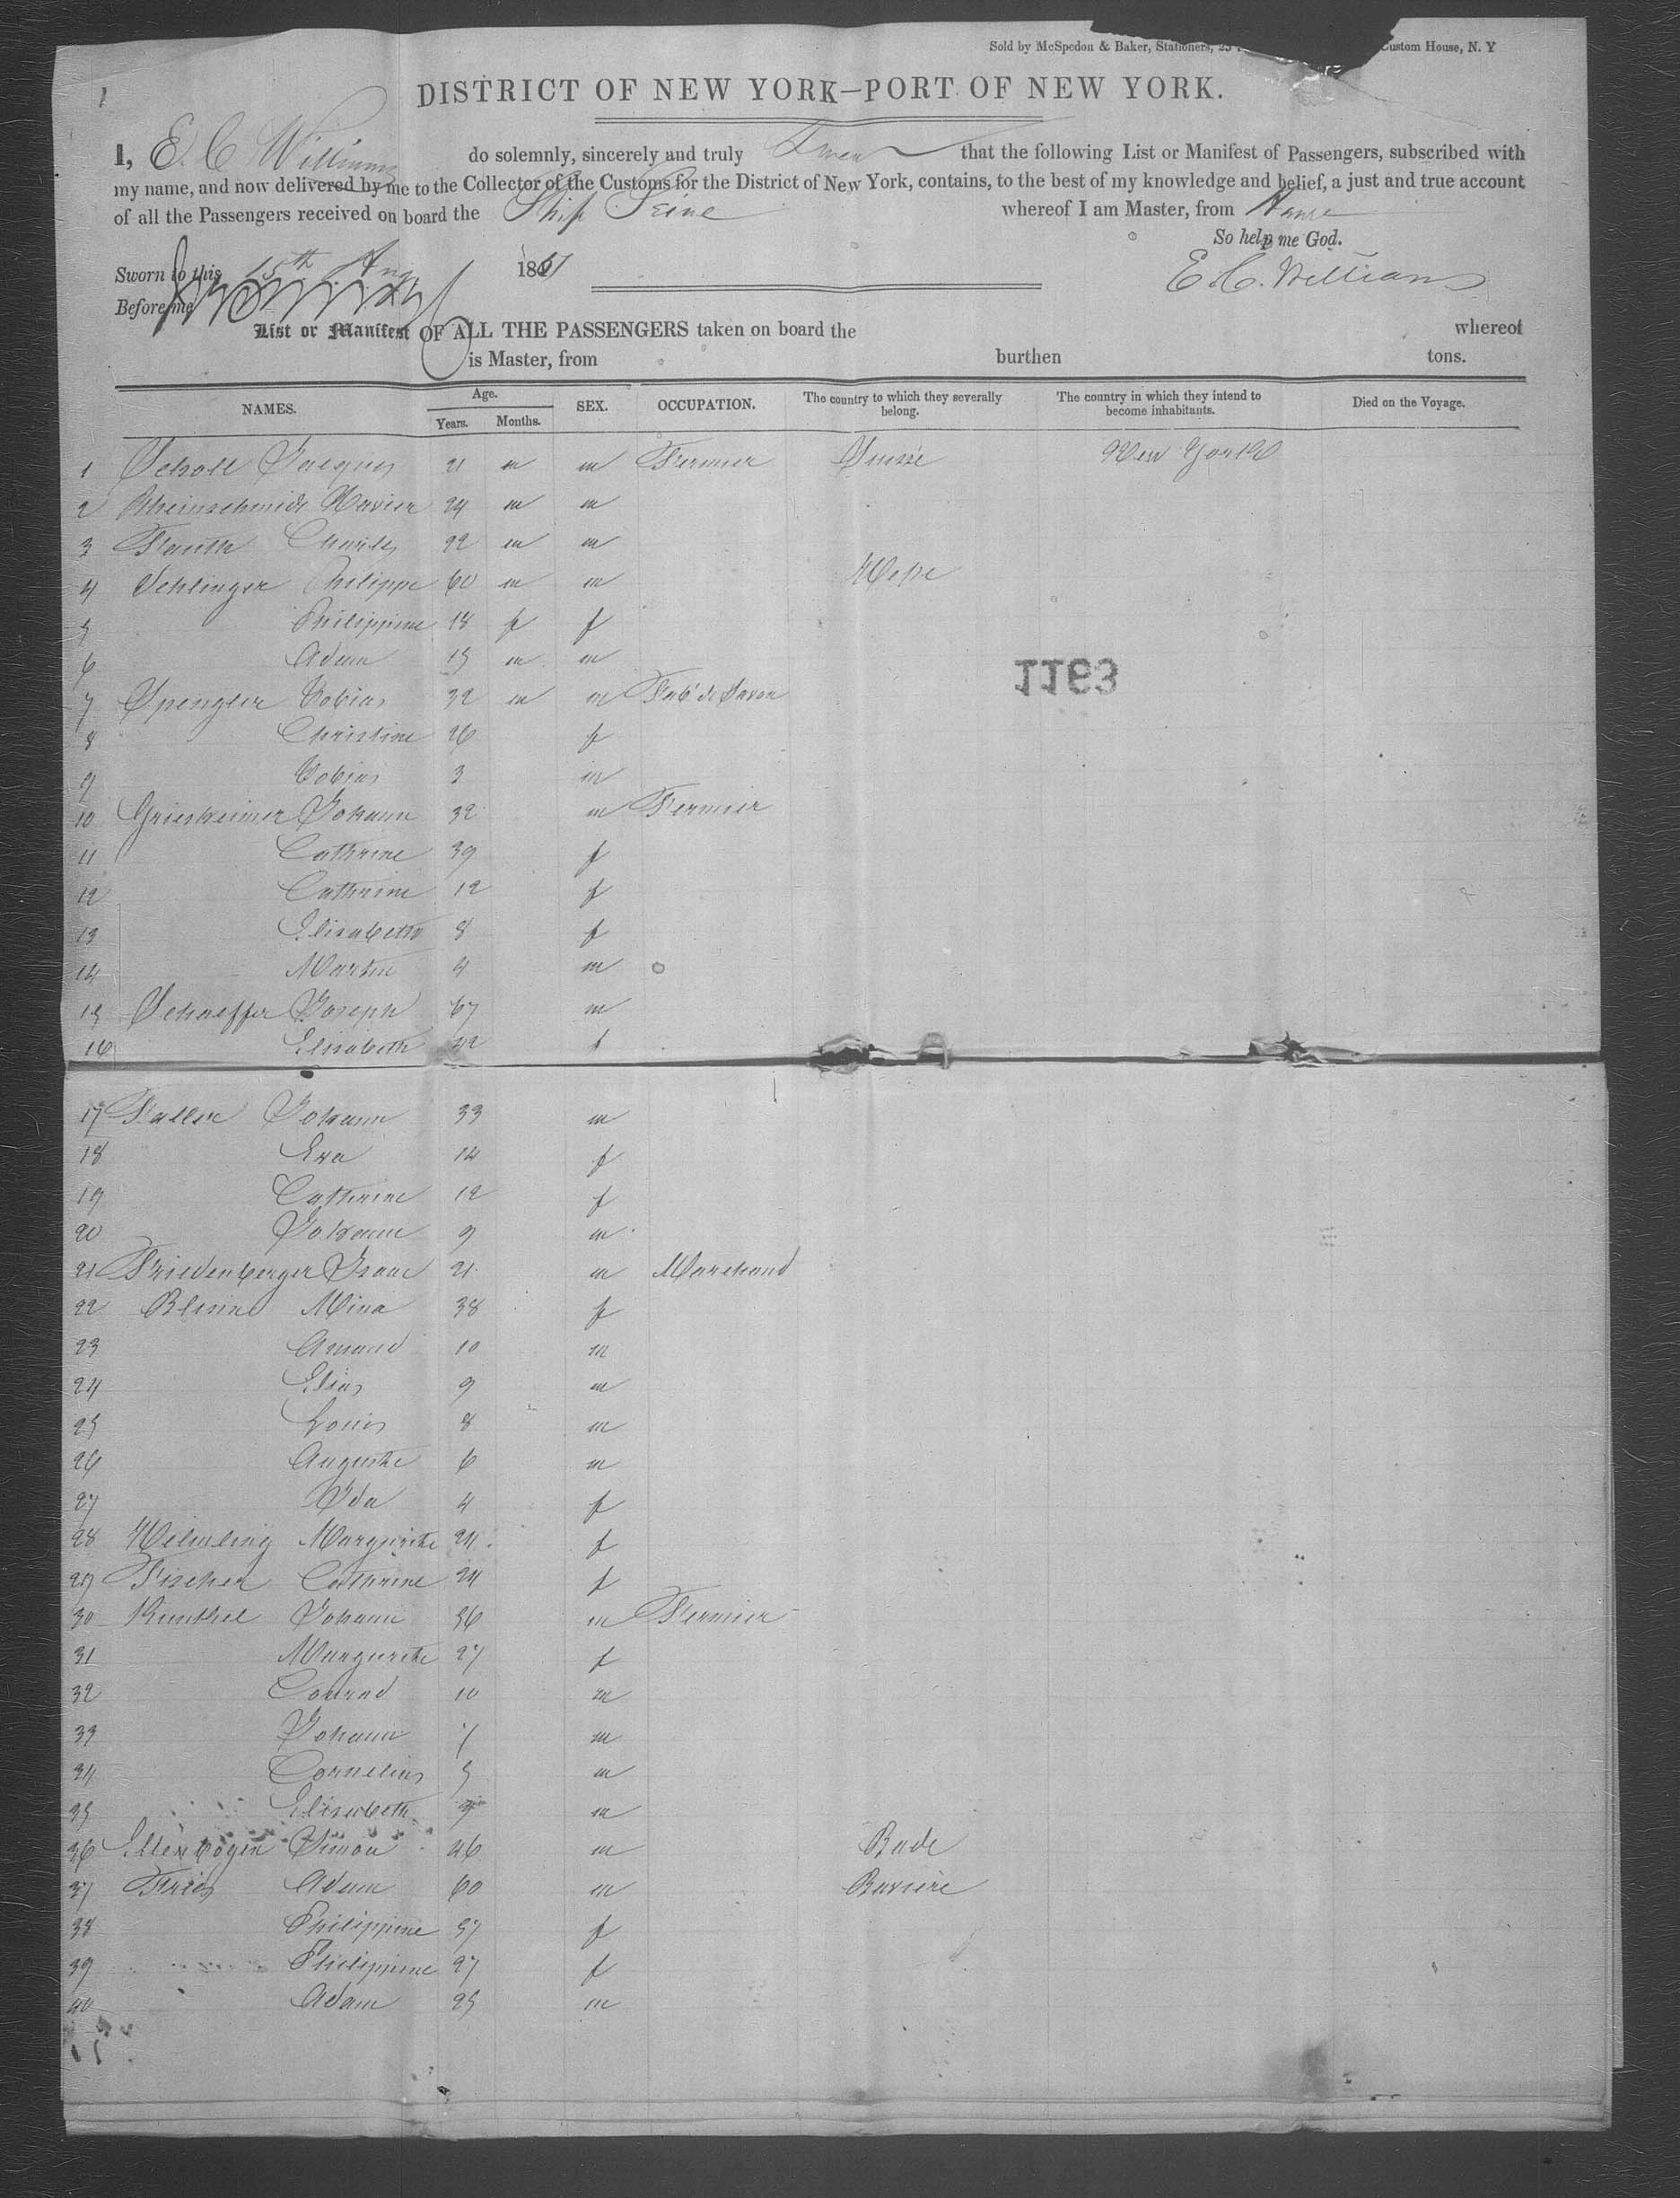 Sold by McSpedon & Baker, Stationers, 25 Custom House, N. Y
DISTRICT OF NEW YORK—PORT OF NEW YORK.
I, E. C Williams do solemnly, sincerely and truly Swear that the following List or Manifest of Passengers, subscribed with
my name, and now delivered by me to the Collector of the Customs for the District of New York, contains, to the best of my knowledge and belief, a just and true account
of all the Passengers received on board the Ship Seine whereof I am Master, from Havre
So help me God.
Sworn to this 15th Aug 1861 E. C. Williams
Before me
List or Manifest OF ALL THE PASSENGERS taken on board the whereof
is Master, from burthen tons.
NAMES. Age. Years. Months. SEX. OCCUPATION. The country to which they severally belong. The country in which they intend to become inhabitants. Died on the Voyage.
1 Scholl Jacques 21 m m Fermier Suisse New York
2 Rheinschmidt Xavier 24 m m
3 Fauth Charles 22 m m
4 Schlinger Philippe 60 m m Hesse
5 Philippine 18 f f
6 Adam 15 m m
7 Spengler Tobias 32 m m Fabt de Savon
8 Christine 26 f
9 Tobias 3 m
10 Griesheimer Johann 32 m Fermier
11 Cathrine 39 f
12 Cathrine 12 f
13 Elisabeth 8 f
14 Martin 4 m
15 Schaeffer Joseph 67 m
16 Elisabeth 42 f
17 Faller Johann 33 m
18 Eva 14 f
19 Cathrine 12 f
20 Johann 9 m
21 Friedenberger Isaac 21 m Marchand
22 Mina 38 f
23 Amand 10 m
24 Elias 9 m
25 Louis 8 m
26 Auguste 6 m
27 Ida 4 f
28 Margurite 24 f
29 Fischer Cathrine 24 f
30 Kunkel Johann 36 m Fermier
31 Margurite 27 f
32 Conrad 10 m
33 Johann 7 m
34 Cornelius 5 m
35 Elisabeth m
36 Ellenbogen Simon 46 m Bade
37 Fries Adam 60 m Baviere
38 Philippine 57 f
39 Philippine 27 f
40 Adam 25 m
1163